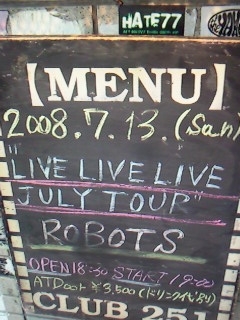 HATE77
【MENU】
2008.7.13.(Sun)
"LIVE LIVE LIVE
JULY TOUR"
ROBOTS
OPEN 18:30 START 19:00
AT Door ¥3,500(ドリンク代別)
CLUB 251